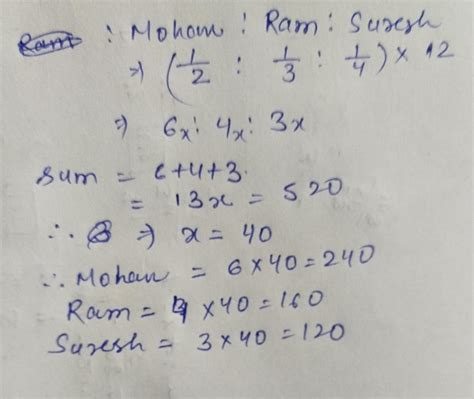 : Mohan : Ram : Suresh
⇒ (1/2 : 1/3 : 1/4) × 12
⇒ 6x : 4x : 3x
Sum = 6+4+3
= 13x = 520
∴ ⇒ x = 40
∴ Mohan = 6×40 = 240
Ram = 4×40 = 160
Suresh = 3×40 = 120